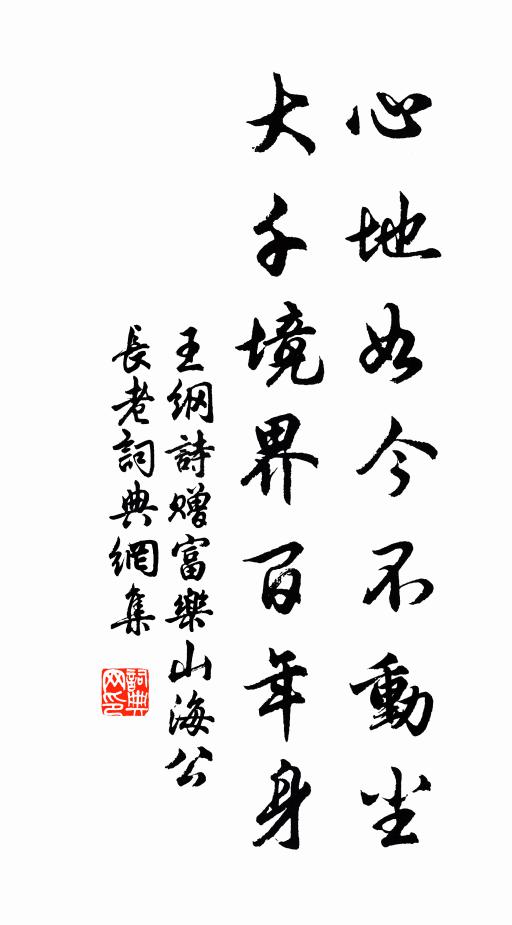 心地如今不動尘
大千境界百年身
王纲詩赠富樂山海公
長老詞典網集
詞典网印